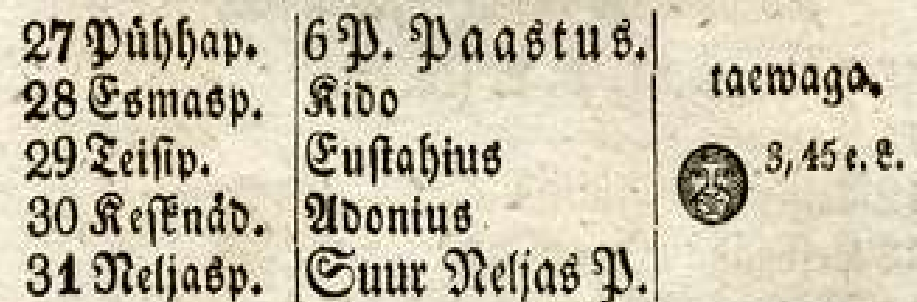 27 Pühhap. 6 P. Paastus.
28 Esmasp. Kido
taewaga.
29 Teisip. Eustahius
3, 45 e. L.
30 Kesknäd. Adonius
31 Neljasp. Suur Neljas P.